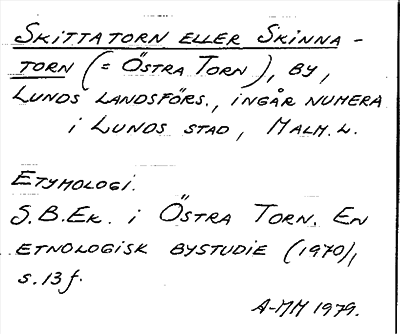 SKITTATORN ELLER SKINNA-
TORN (= ÖSTRA TORN), BY,
LUNDS LANDSFÖRS., INGÅR NUMERA
i LUNDS STAD, MALM. L.
ETYMOLOGI.
S.B.EK. i ÖSTRA TORN. EN
ETNOLOGISK BYSTUDIE (1970),
s.13f.
A-MM 1979.